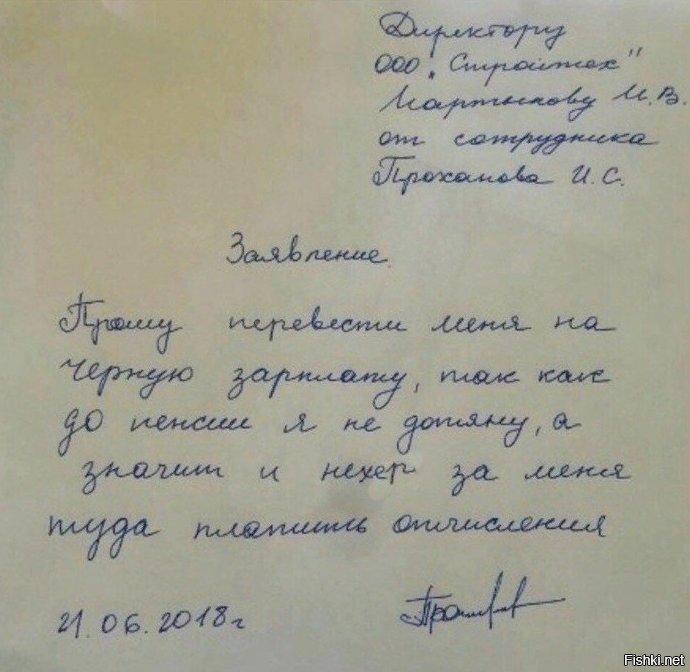 Директору
ООО „Стройтех"
Мартынову И.В.
от сотрудника
Проханова И.С.
Заявление.
Прошу перевести меня на
черную зарплату, так как
до пенсии я не дотяну, а
значит и нехер за меня
туда платить отчисления
21.06.2018г
Fishki.net